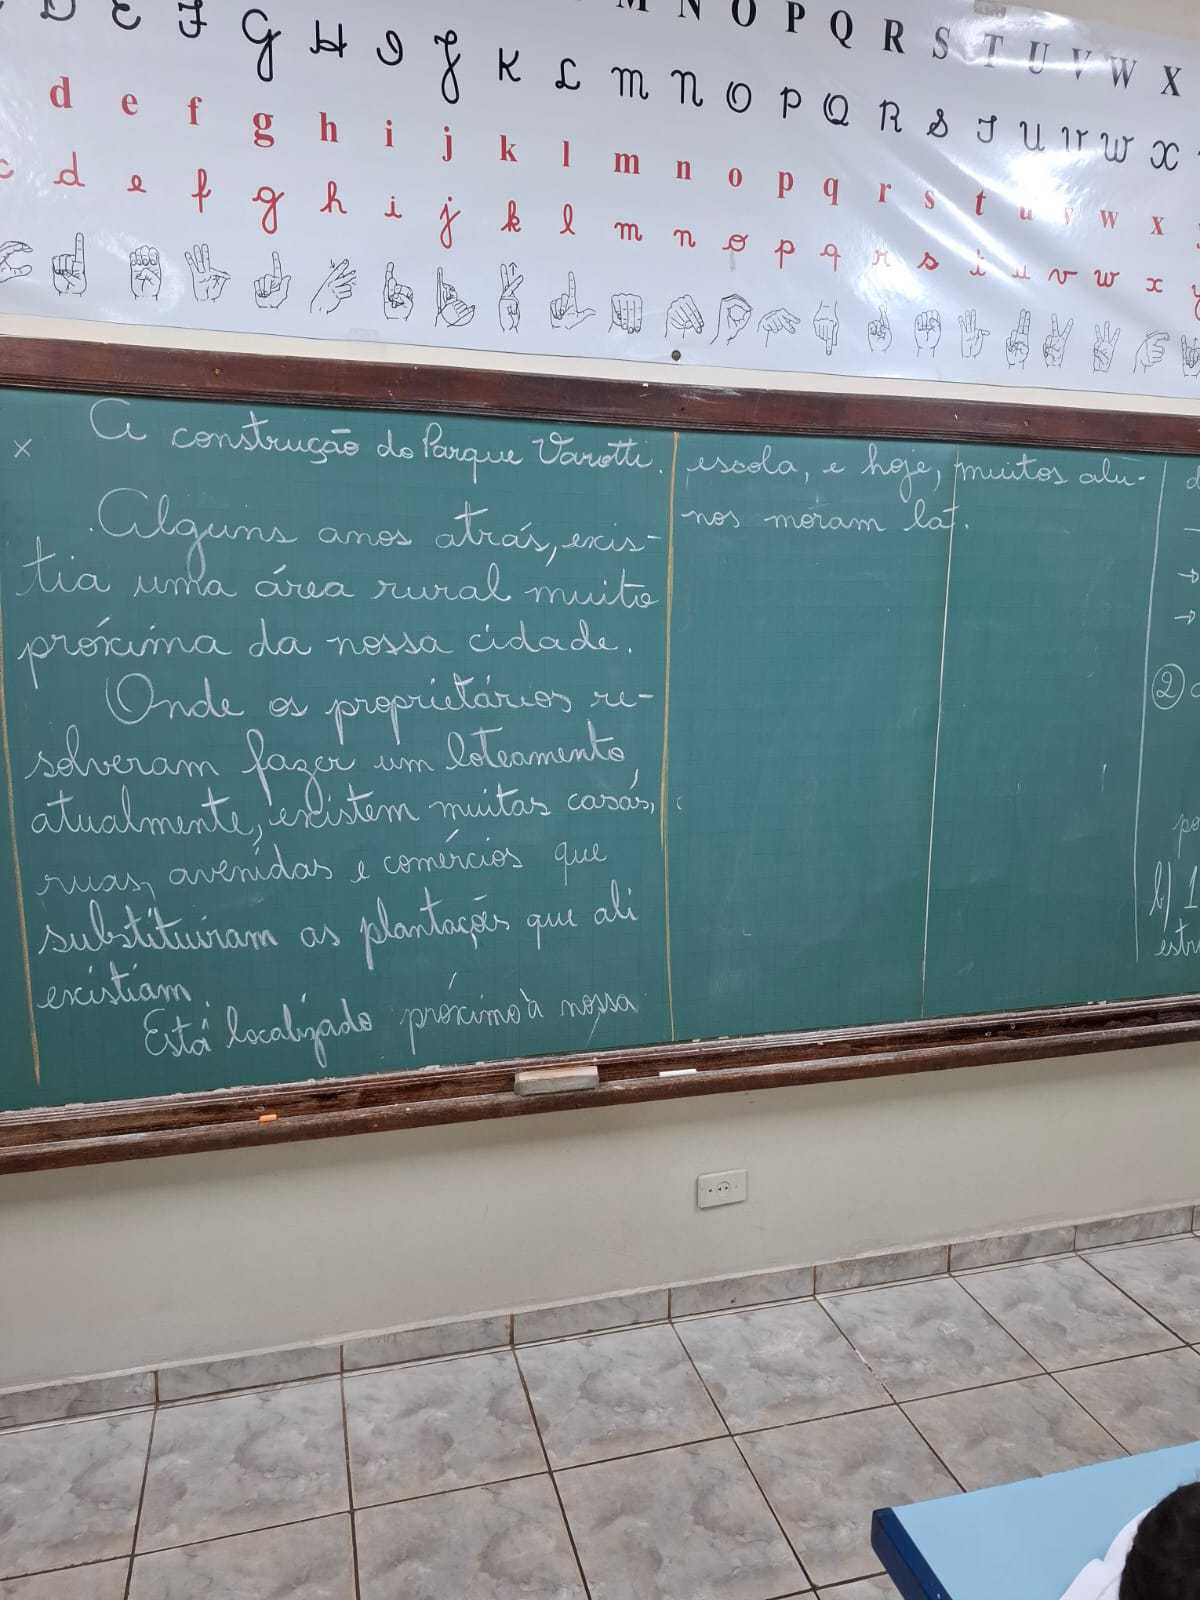 M N O P Q R S T U V W X
D E F G H I J K L M N O P Q R S T U V W X
d e f g h i j k l m n o p q r s t u v w x
c d e f g h i j k l m n o p q r s t u v w x y
× A construção do Parque Varotti.
Alguns anos atrás, exis-
tia uma área rural muito
próxima da nossa cidade.
Onde os proprietários re-
solveram fazer um loteamento
atualmente, existem muitas casas,
ruas, avenidas e comércios que
substituiram as plantações que ali
existiam.
Está localizado próximo à nossa
escola, e hoje, muitos alu-
nos moram lá.
→
→
2
b) 1